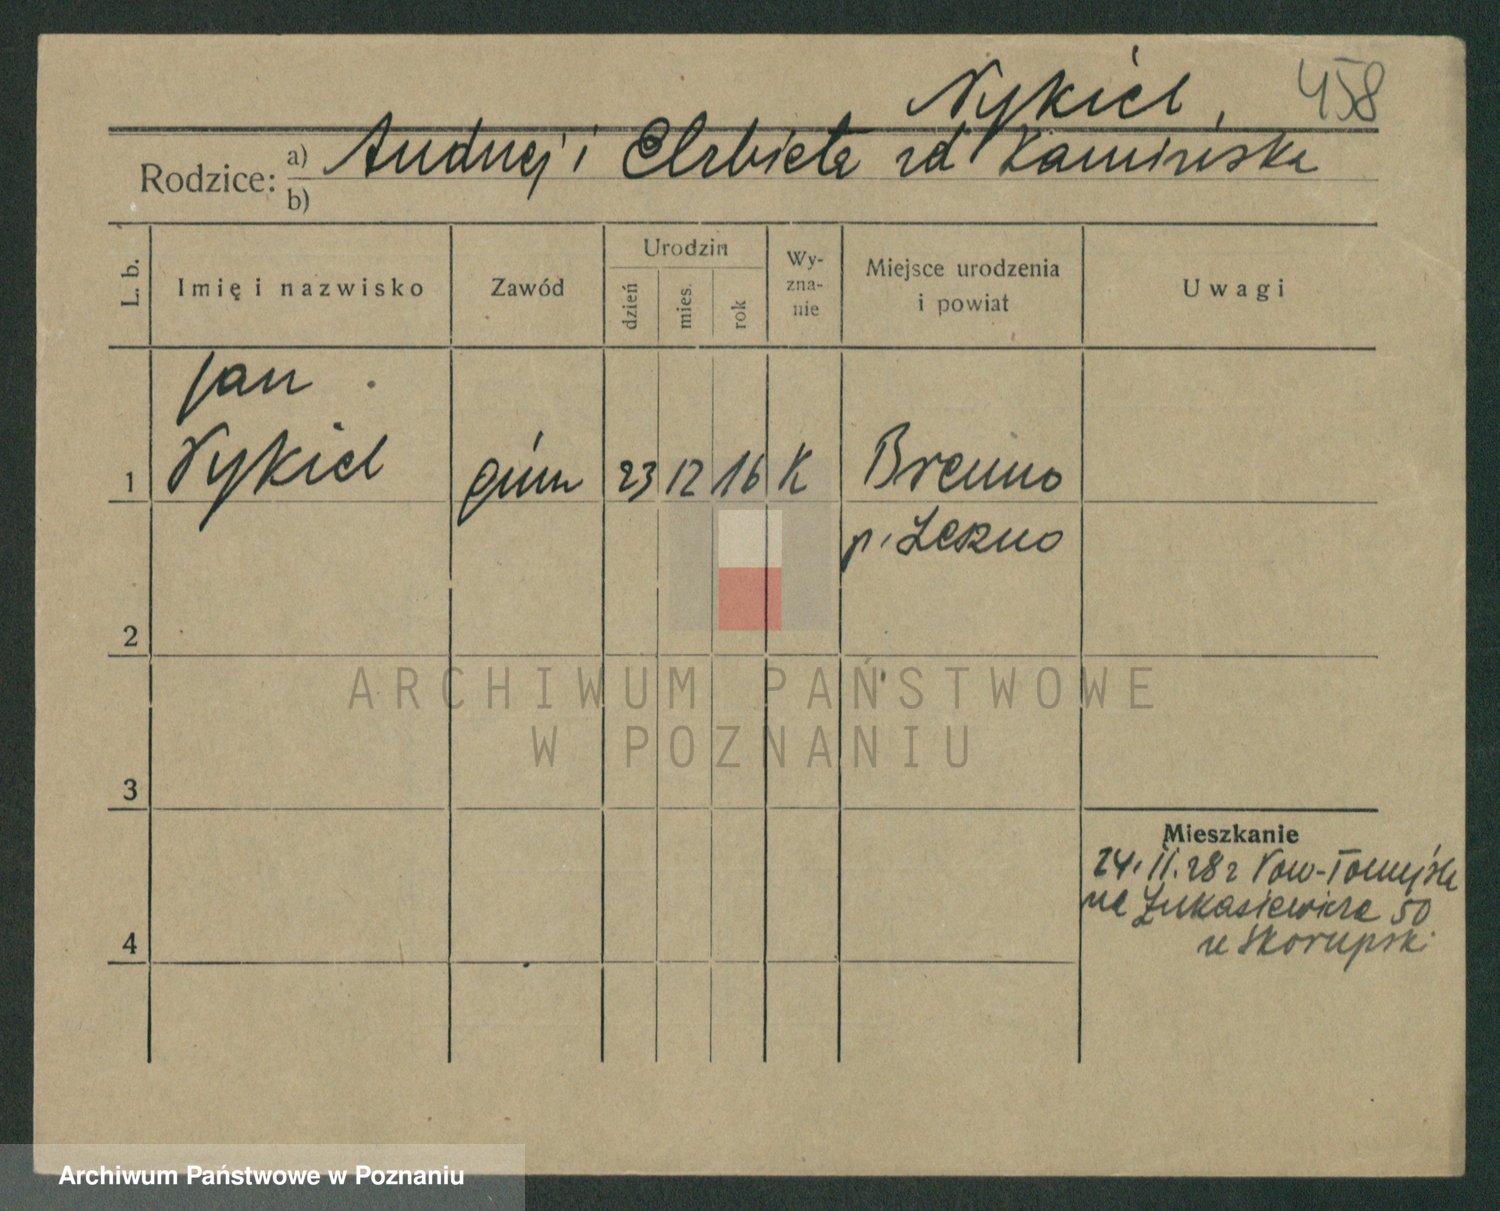 Nykiel, 458
Rodzice: a) Andrzej i Elżbieta zd Kamińska
b)
L. b. Imię i nazwisko Zawód Urodzin dzień mies. rok Wy-zna-nie Miejsce urodzenia i powiat Uwagi
Jan
1 Nykiel gimn 23 12 16 K Brenno
p. Leszno
2
ARCHIWUM PAŃSTWOWE
W POZNANIU
3
Mieszkanie
24. II. 28 r Now-Tomyśla
na Łukasiewicza 50
4 u Skorupski
Archiwum Państwowe w Poznaniu